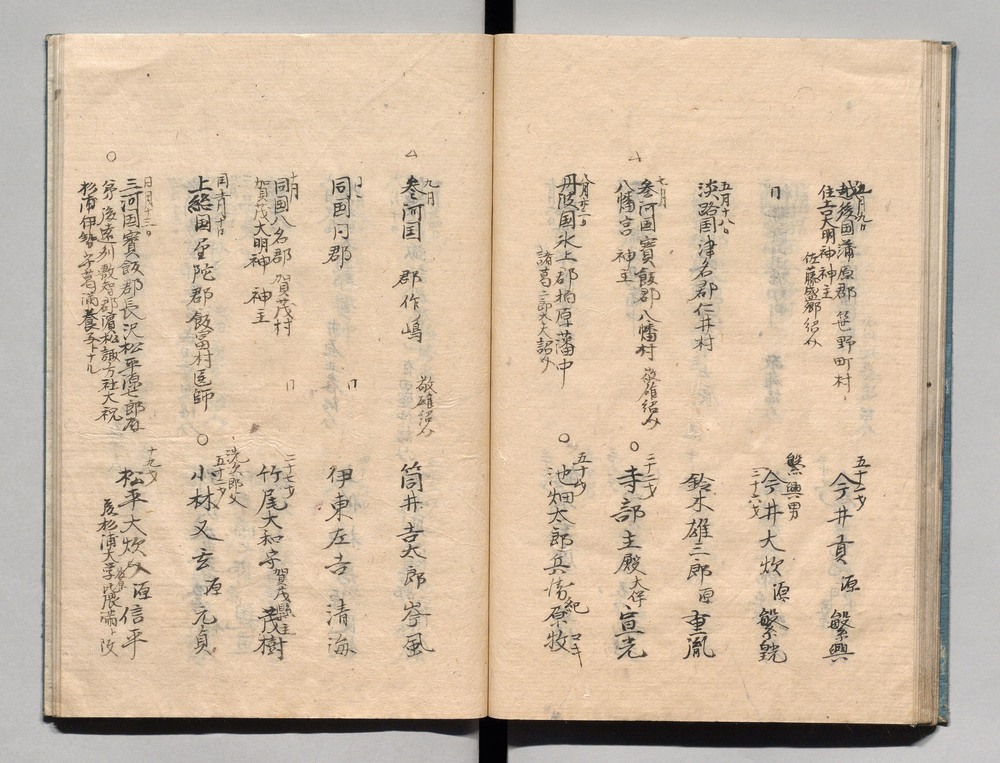 五月九日
越後国蒲原郡 笹野町村
住吉大明神神主
佐藤盛郷紹介
五十二才
今井貢 源 繁興
同
繁興男
三十六才
今井大炊 源 繁
五月十八日
淡路国津名郡仁井村
鈴木雄三郎 源 重胤
七月
△ 参河国宝飯郡八幡村 敬雄紹介
八幡宮 神主
二十二才
○ 寺部主殿 大伴 宣光
八月廿一日
丹波国氷上郡柏原藩中
諸葛二郎大夫紹介
五十才
○ 池畑太郎兵衛 紀 原牧
九月
△ 参河国 郡作嶋
敬雄紹介
筒井吉太郎 岑風
同
同国同郡 同
伊東左吉 清海
十月
同国八名郡 賀茂村 同
賀茂大明神 神主
二十七才
竹尾大和守 賀茂縣主 茂樹
同月十日
上総国望陀郡飯富村医師
洗次郎父
五十二才
○ 小林又玄 源 元貞
同月十三日
○ 三河国寶飯郡長沢松平源七郎
弟 後遠州敷智郡濱松諏方社大祝
杉浦伊勢守葛満養子トナル
十九才
松平大炊 源信平
後杉浦大学 農満ト改